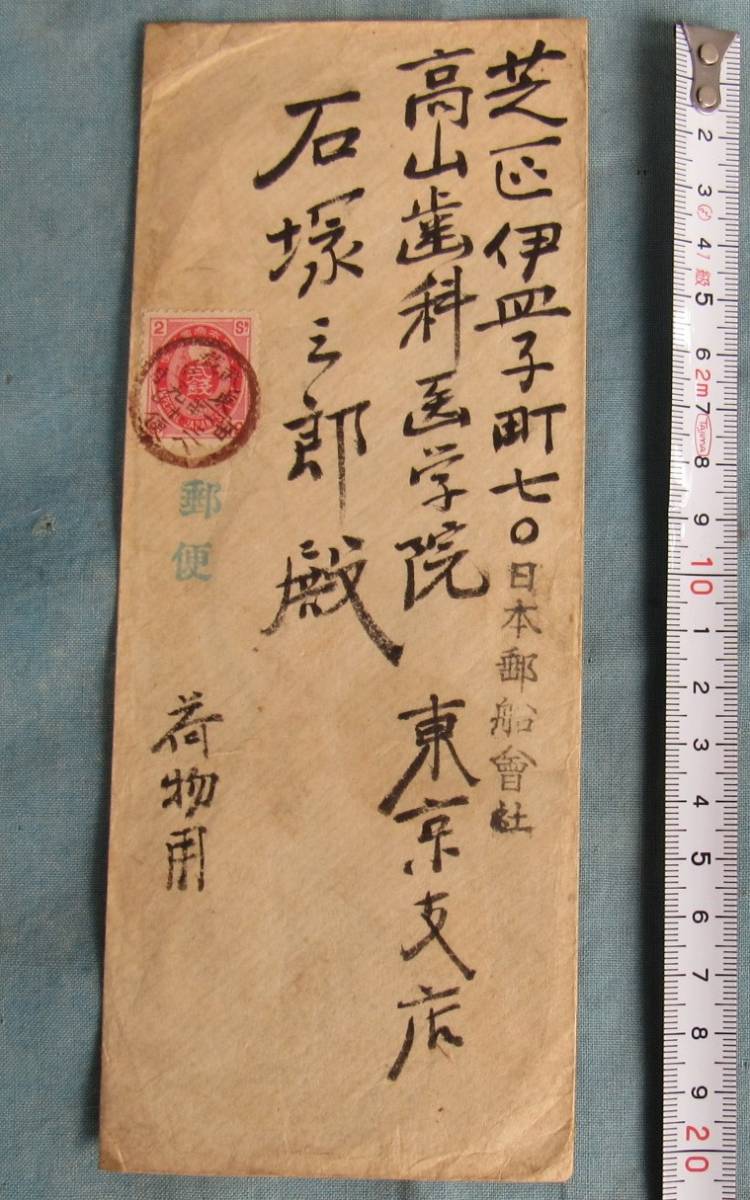 芝区伊皿子町七〇
高山歯科医学院
石塚三郎殿
日本郵船會社
東京支店
郵便
荷物用
2 Sⁿ
弐銭
2
3
4
1級
5
6
2m
7
TAJIMA
8
9
10
1
2
3
4
5
6
7
8
9
20